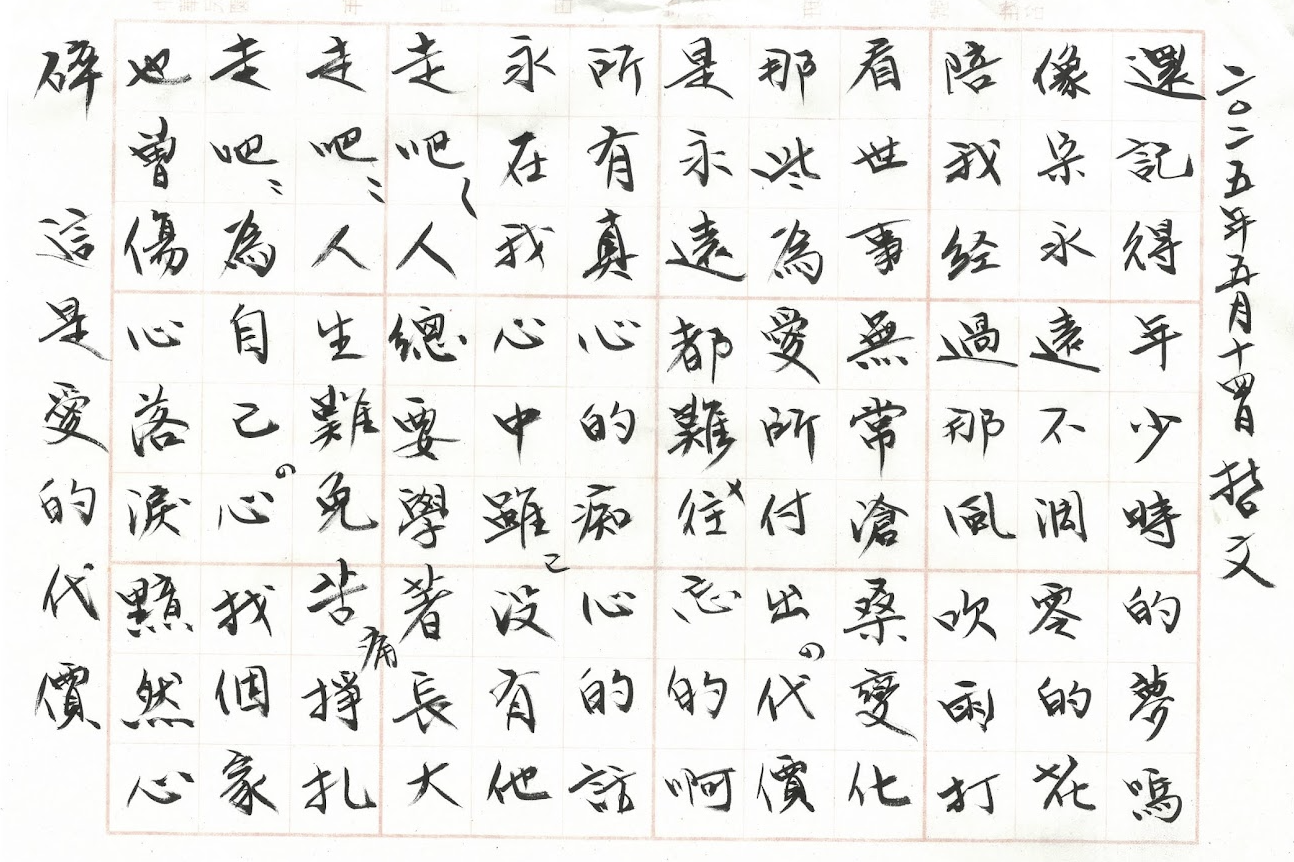 二〇二五年五月十四日 哲文
還記得年少時的夢嗎
像朵永遠不凋零的花
陪我经過那風吹雨打
看世事無常滄桑變化
那些為愛所付出の代價
是永遠都難往忘的啊
所有真心的痴心的話
永在我心中雖已没有他
走吧〱人總要學著長大
走吧〻人生難免苦痛掙扎
走吧〻為自己の心找個家
也曾傷心落淚黯然心
碎 這是愛的代價